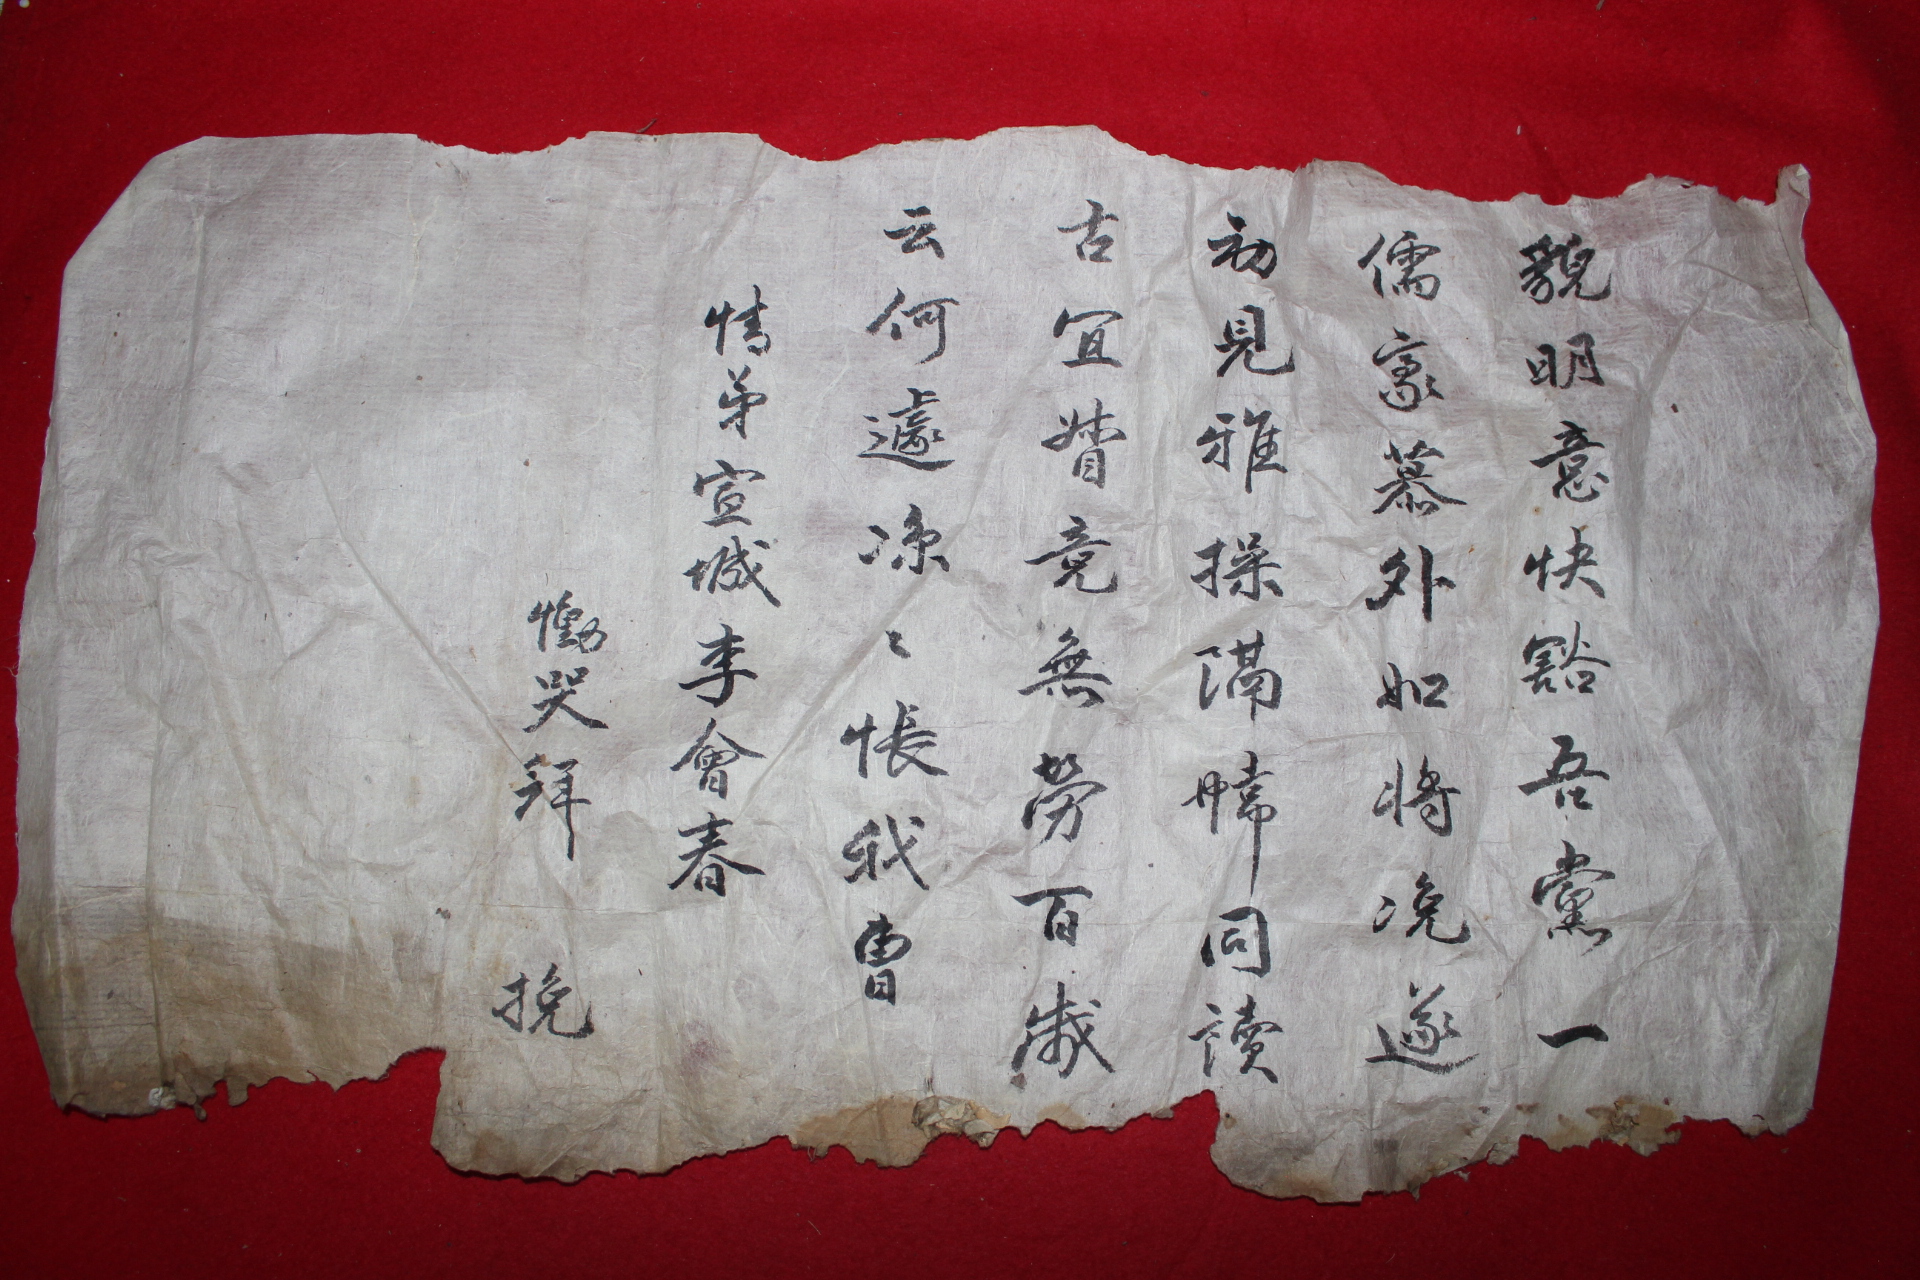 貌明意快豁吾黨一
儒豪慕外如將浼遂
初見雅操隔幃同讀
古宜婿竟無勞百歲
云何遽凉〻悵我曹
情弟宣城李會春
慟哭拜 挽